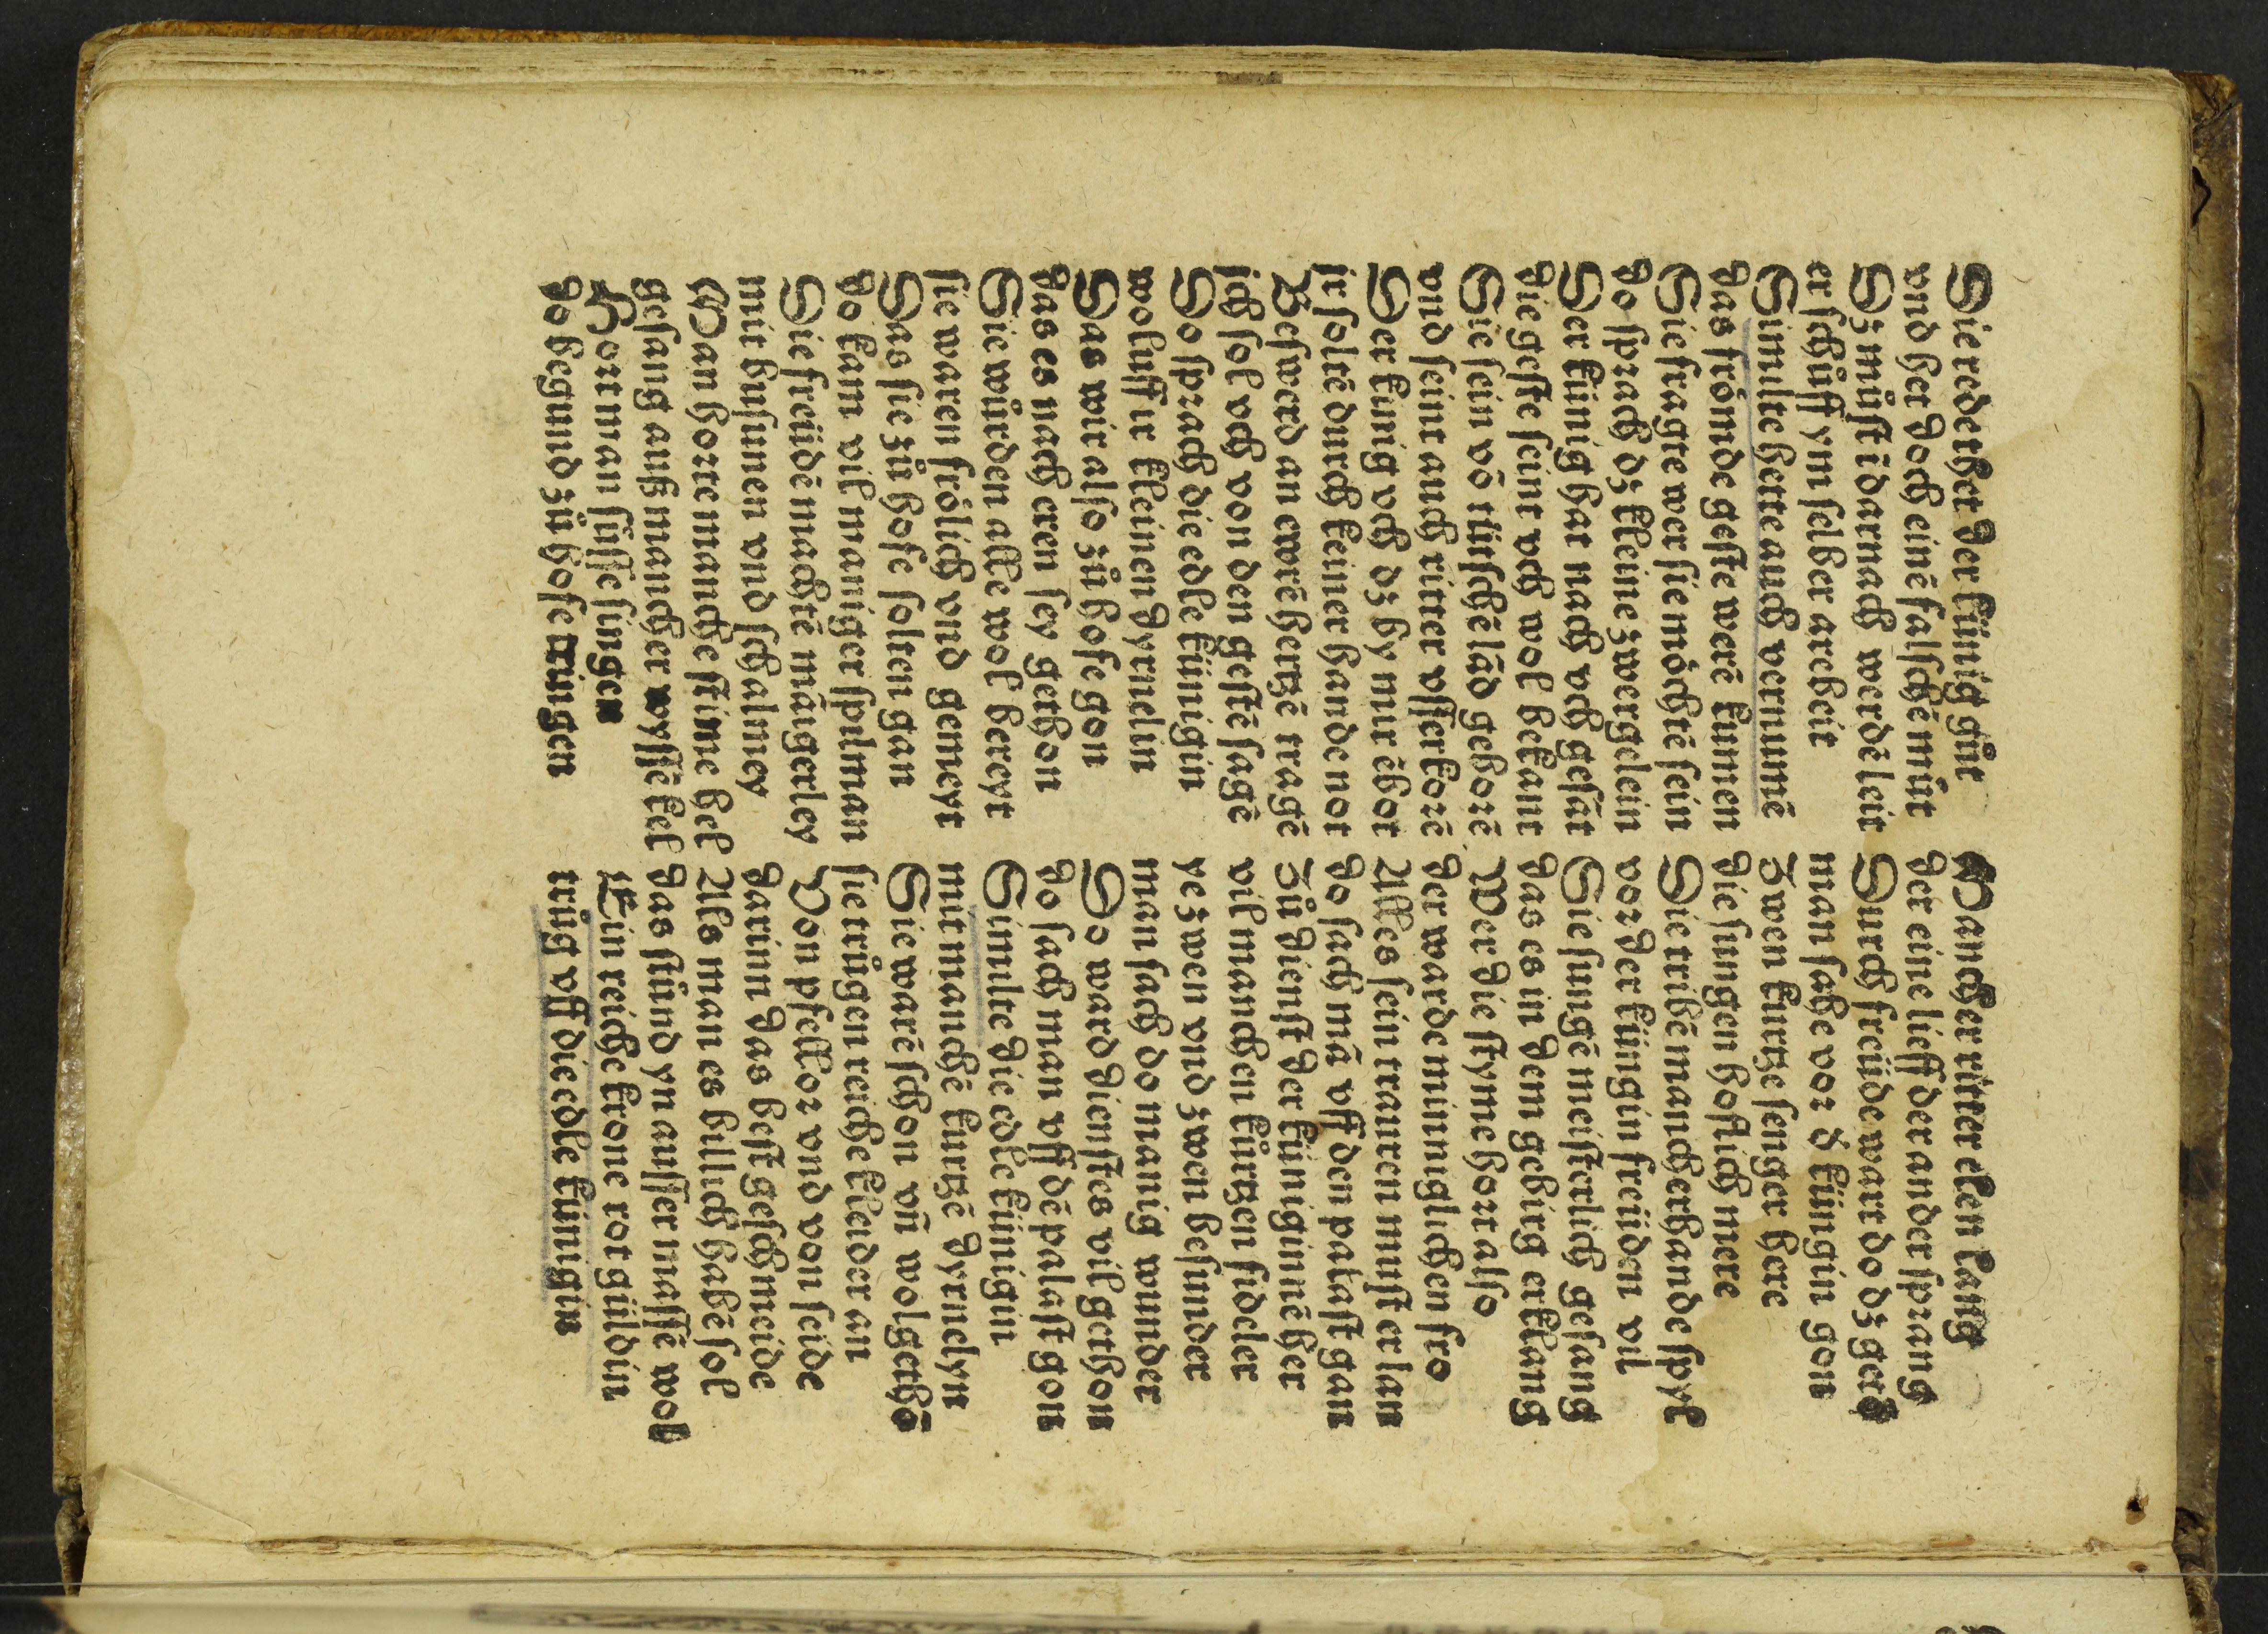 Die redet her der künig gůt
vnd het doch einē falschē můt
Dz můst ī darnach werdē leit
er schůff ym selber arebeit
Similte hette auch vernumē
das frömde geste werē kumen
Die fragte wer sie möchtē sein
do sprach dz kleine zwergelein
Der künig hat nach vch gesāt
die geste seint vch wol bekant
Die sein vō tütschē lād geborē
vnd seint auch ritter vsserkorē
Der künig vch dz by mir ēbot
ir soltē durch keiner hande not
Beswerd an ewrē hertzē tragē
ich sol vch von den gestē sagē
Do sprach die edle künigin
woluff ir kleinen dyrnelin
Das wir also zů hofe gon
das es nach eren sey gethon
Die würden alle wol bereyt
sie waren frölich vnd gemeyt
Das sie zů hofe solten gan
do kam vil maniger spilman
Die freüdē machtē māigerley
mit busunen vnd schalmey
Man horte manche stime hel
gesang auß mancher wyssē kel
Hort man süsse singen
do begund zů hofe tringen
Mancher ritter elen lang
der eine lieff der ander sprang
Durch freüde wart do dz getō
man sahe vor ď küngin gon
Zwen kurtze senger here
die sungen hoflich mere
Die tribē mancherhande spyl
vor der küngin freüden vil
Die sungē meisterlich gesang
das es in dem gebirg erklang
Wer die styme hort also
der warde minniglichen fro
Alles sein trauren must er lan
do sach mā vff den palast gan
Zů dienst der küniginnē her
vil manchen kürtzen fideler
ye zwen vnd zwen besunder
man sach do manig wunder
Do ward dienstes vil gethon
do sach man vff dē palast gon
Similte die edle künigin
mit manchē kurtzē dyrnelyn
Die warē schon vn̄ wolgethō
sie trůgen reiche kleider an
Von pfellor vnd von seide
darinn das best geschmeide
Als man es billich habē sol
das stůnd yn ausser massē wol
Ein reiche krone rot güldin
trůg vff die edle künigin